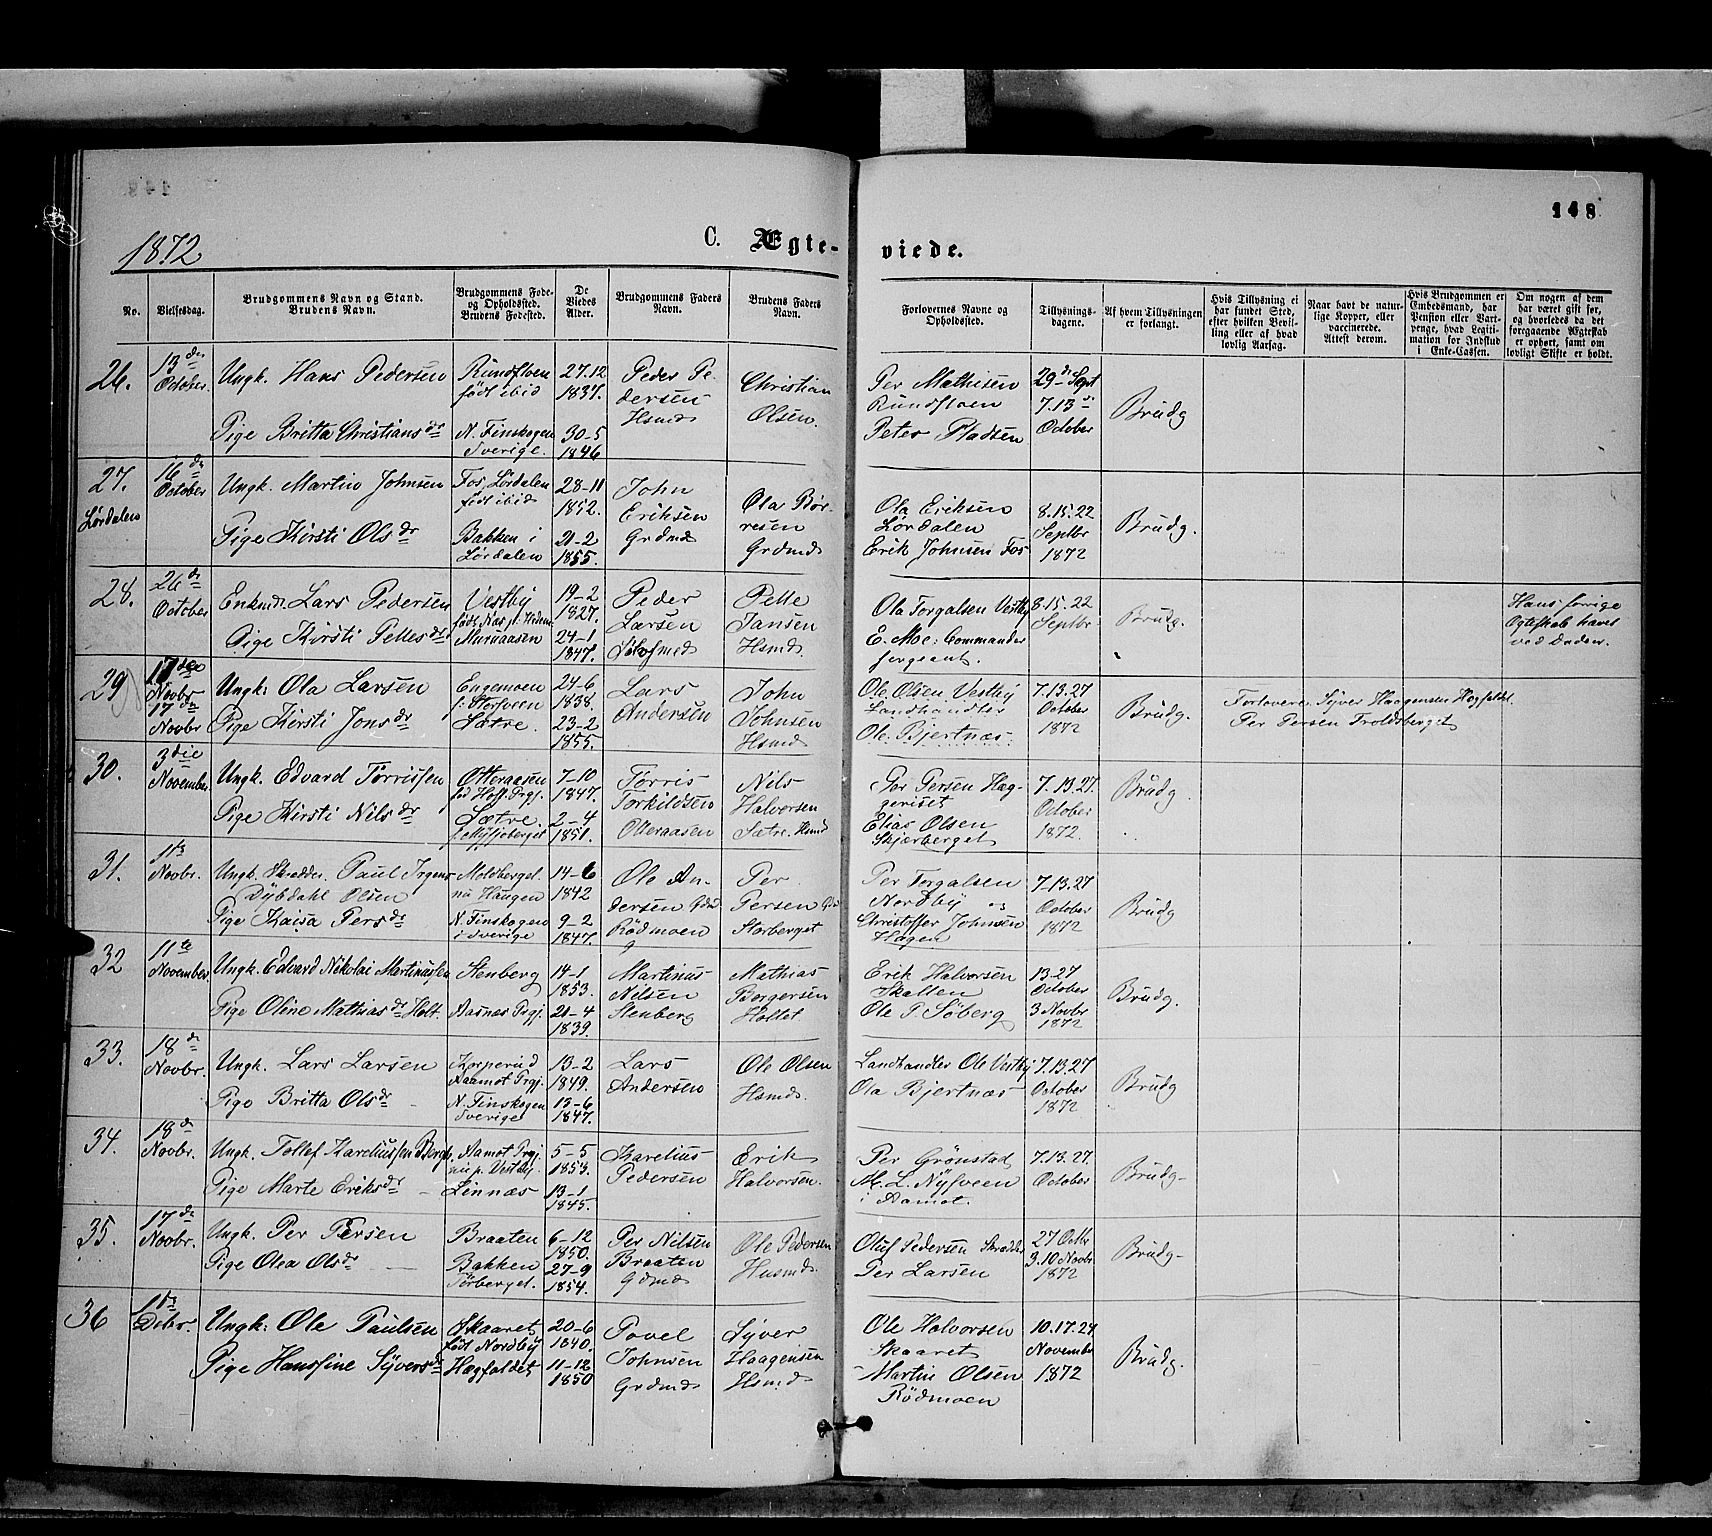 148
1872
C. Ægte-
viede.
No.
Vielsesdag.
Brudgommens Navn og Stand.
Brudens Navn.
Brudgommens Føde-
og Opholdssted.
Brudens Fødested.
De
Viedes
Alder.
Brudgommens Faders
Navn.
Brudens Faders
Navn.
Forlovernes Navne og
Opholdssted.
Tillysnings-
dagene.
Af hvem Tillysningen
er forlangt.
Hvis Tillysning ei
har fundet Sted,
efter hvilken Bevil-
ling eller af hvad
lovlig Aarsag.
Naar havt de natur-
lige Kopper, eller
vaccinerede.
Attest derom.
Hvis Brudgommen er
Embedsmand, har
Pension eller Vart-
penge, hvad Legiti-
mation for Indskud
i Enke-Cassen.
Om nogen af dem
har været gift før,
og hvorledes da det
foregaaende Ægteskab
er ophørt, samt om
lovligt Skifte er holdt.
26.
13de
October.
Ungk. Hans Pedersen
Pige Britta Christiansdr
Rundfloen
født ibid
N. Finskogen
Sverige.
27.12
1837.
30-5
1846
Peder Pe-
dersen
Hsmd
Christian
Olsen.
Per Mathisen
Rundfloen
Peter Pladsen
29d Sept
7.13de
October
Brudg
27.
Lørdalen
16de
October
Ungk. Martin Johnsen
Pige Kirsti Olsdr
Fos, Lørdalen
født ibid
Bakken i
Lørdalen
28-11
1852.
21-2
1855.
John
Eriksen
Grdmd
Ola Bør-
resen
Grdmd
Ola Eriksen
Lørdalen
Erik Johnsen Fos
8.15.22
Septbr
1872
Brudg.
28.
26de
October
Enkmd. Lars Pedersen
Pige Kirsti Pellesdr
Vestby
født Næs p. Hedem.
Muruaasen
19-2
1827.
24-1
1847.
Peder
Larsen
Pelle
Jansen
Hsmd.
Ola Torgalsen Vestby
E. Moe: Commander
sergeant.
8.15.22
Septbr.
Brudg.
Hans forrige
Egteskab hævet
ved Døden.
29
17de
Novbr
17de
Novbr
Ungk: Ola Larsen
Pige Kirsti Jonsdr
Engemoen
f: Storsveen
Sætre.
24-6
1838.
23-2
1855.
Lars
Andersen
John
Johnsen
Hsmd
Ole Olsen Vestby
Landhandler
Ole Bjertnæs.
7.13.27
October
1872
Brudg.
Forlovere Syver Haagensen Hegfaldet.
Per Persen Troldsberget
30.
3die
November
Ungk. Edvard Tørrissen
Pige Kirsti Nilsdr
Otteraasen
fød Hoff Prgj.
Sætre.
7-10
1847.
2-4
1851.
Tørris
Torkildsen
Otteraasen
Nils
Halvorsen
Sætre. Hsmd
Per Persen Hæg-
geriset
Elias Olsen
Skjærberget
7.13.27.
October
1872.
Brudg.
31.
11te
Novbr.
Ungk. Skrædder Paul Irgens
Dybdahl Olsen
Pige Kaisa Persdr
Moldberget.
nu Haugen
N. Finskogen
i Sverige
14-6
1842
9-2
1847.
Ole An-
dersen Gdmd
Rødmoen
Per
Persen
Storberget
Per Torgalsen
Nordby og
Christoffer Johnsen
Hagen
7-13.27
October
1872
Brudg
32
11te
November
Ungk. Edvard Nikolai Martinussen
Pige Oline Mathiasdr Holt.
Stenberg
Aasnæs Prgj.
14-1
1853.
21-4
1839.
Martinus
Nilsen
Stenberg
Mathias
Borgersen
Holtet
Erik Halvorsen
Skallen
Ole P. Søberg
13.27
October
3 Novbr
1872
Brudg.
33.
18de
Novbr.
Ungk. Lars Larsen
Pige Britta Olsdr
Korperud
Aamot Prgj.
N. Finskogen
Sverige
13-2
1849.
13-6
1847.
Lars
Andersen
Ole Olsen
Hsmd.
Landhandler Ole Vestby
Ola Bjertnæs
7.13.27
October
1872
Brudg
34.
18de
Novbr.
Ungk. Tollef Kareliussen Berg
Pige Marte Eriksdr
Aamot Prgj.
nu p. Vestby.
Linnæs
5-5
1853.
13-1
1845.
Karelius
Pedersen
Erik
Halvorsen.
Per Grønstad
M. L. Nysveen
i Aamot.
7.13.27.
October
Brudg-
35.
17de
Novbr.
Ungk. Per Persen
Pige Olea Olsdr
Braaten
Bakken
Tørberget.
6-12
1850.
27-9
1854.
Per Nilsen
Braaten
Gdmd
Ole Pedersen
Husmd.
Oluf Pedersen Skrædder
Per Larsen
27 Octbr
3.10 Novbr
1872
Brudg-
36
1ste
Debr.
Ungk: Ole Paulsen
Pige Hansine Syversdr
Skaaret
født Nordby
Hægfaldet
20-6
1840.
11-12
1850
Povel
Johnsen
Grdmd
Syver
Haagensen
Hsmd
Ole Halvorsen
Skaaret
Martin Olsen
Rødmoen
10.17.24
November
1872
Brudg.